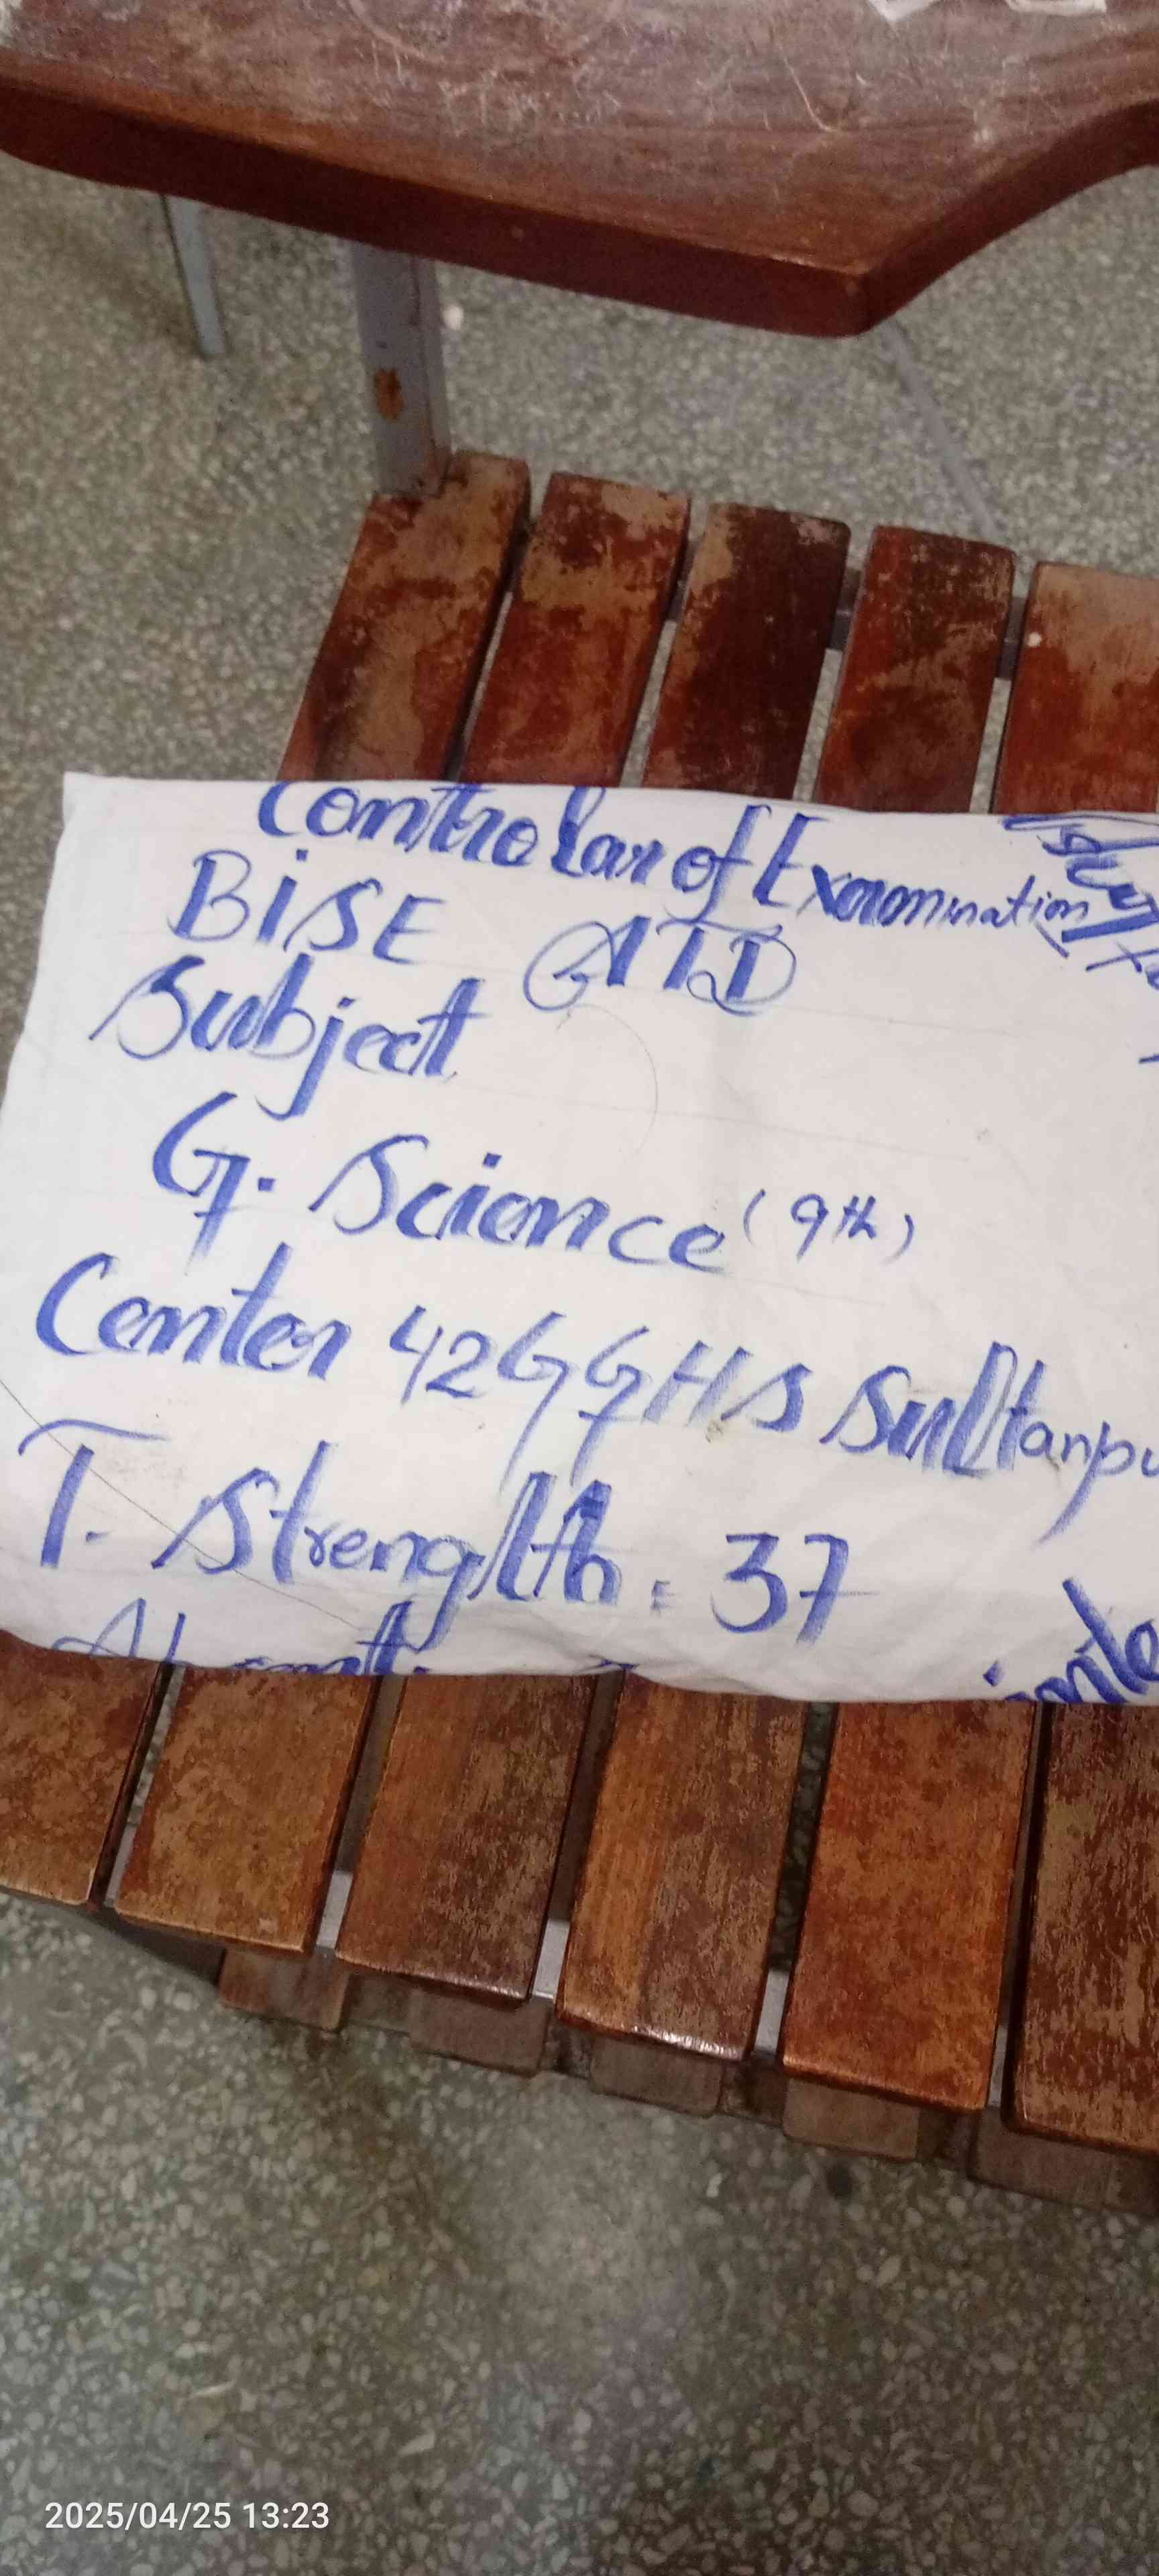 Controlar of Examination
BISE ATD
Subject
G. Science (9th)
Center 42 GGHS Sultanpu
T. Strength = 37
Absent
2025/04/25 13:23